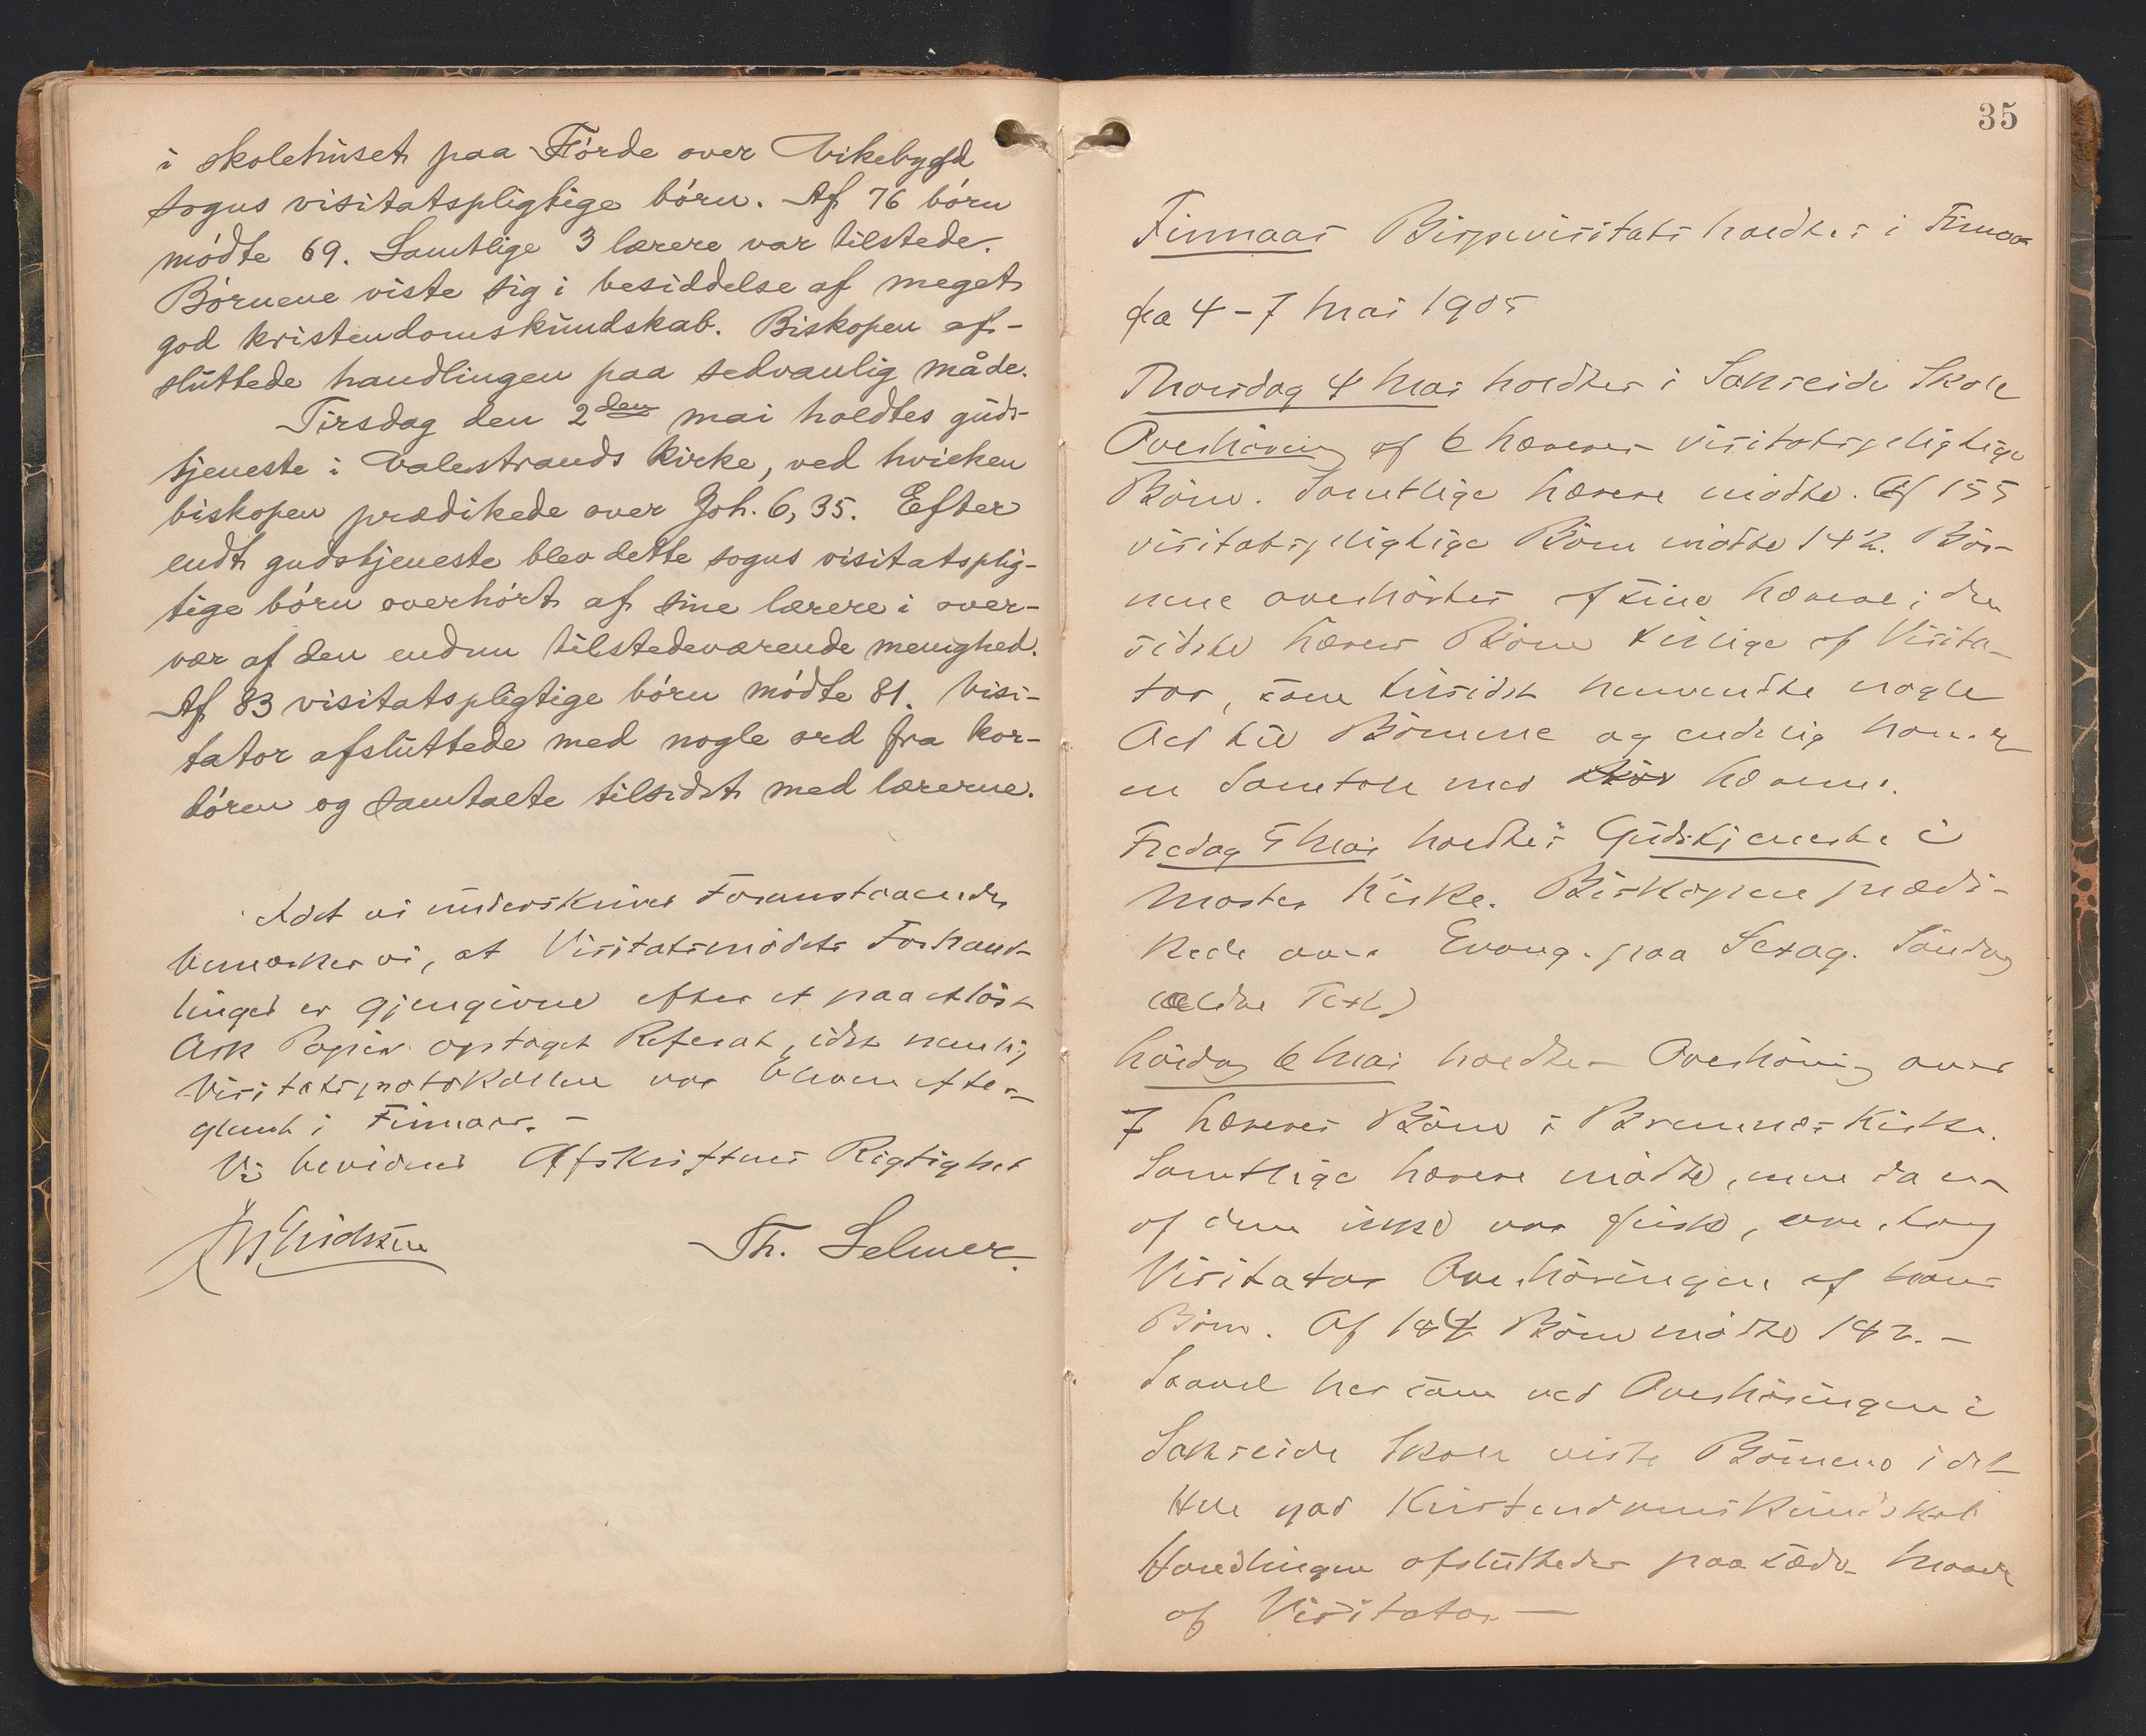 i skolehuset paa Førde over Vikebygd
sogns visitatspligtige børn. Af 76 børn
mødte 69. Samtlige 3 lærere var tilstede.
Børnene viste sig i besiddelse af meget
god kristendomskundskab. Biskopen af-
sluttede handlingen paa sedvanlig måde.
Tirsdag den 2den mai holdtes guds-
tjeneste i Valestrands kirke, ved hvilken
biskopen prædikede over Joh. 6, 35. Efter
endt gudstjeneste blev dette sogns visitatsplig-
tige børn overhørt af sine lærere i over-
vær af den endnu tilstedeværende menighed.
Af 83 visitatspligtige børn mødte 81. Visi-
tator afsluttede med nogle ord fra kor-
døren og samtalte tilsidst med lærerne.
Idet vi underskriver Foranstaaende
bemærker vi, at Visitatsmødets Forhand-
linger er gjengivne efter et paa et løst
Ark Papir optaget Referat, idet nemlig
Visitatsprotokollen var bleven efter-
glemt i Finnaas. -
Vi bevidner Afskriftens Rigtighet
Th. Selmer.
35
Finnaas Bispevisitats holdtes i Finnaas
fra 4-7 Mai 1905
Thorsdag 4 Mai holdtes i Sakseide Skole
Overhøring af 6 Læreres visitatspligtige
Børn. Samtlige Lærere mødte. Af 155
visitatspligtige Børn mødte 142. Bør-
nene overhørtes af sine Lærere; den
sidste Lærers Børn tillige af Visita-
tor, som tilsidst henvendte nogle
Ord til Børnene og endelig
en Samtale med Lærerne.
Fredag 5 Mai holdtes Gudstjeneste i
Moster Kirke. Biskopen prædi-
kede over Evang. paa Sexag. Søndag
(ældre Text)
Lørdag 6 Mai holdtes Overhøring over
7 Læreres Børn i Bremnes Kirke.
Samtlige Lærere mødte, men da en
af dem ikke var frisk, overtog
Visitator Overhøringen af hans
Børn. Af 144 Børn mødte 142. -
Saavel her som ved Overhøringen i
Sakseide Skole viste Børnene i det
Hele god Kristendomskundskab
Handlingen afsluttedes paa sædv. Maade
af Visitator -